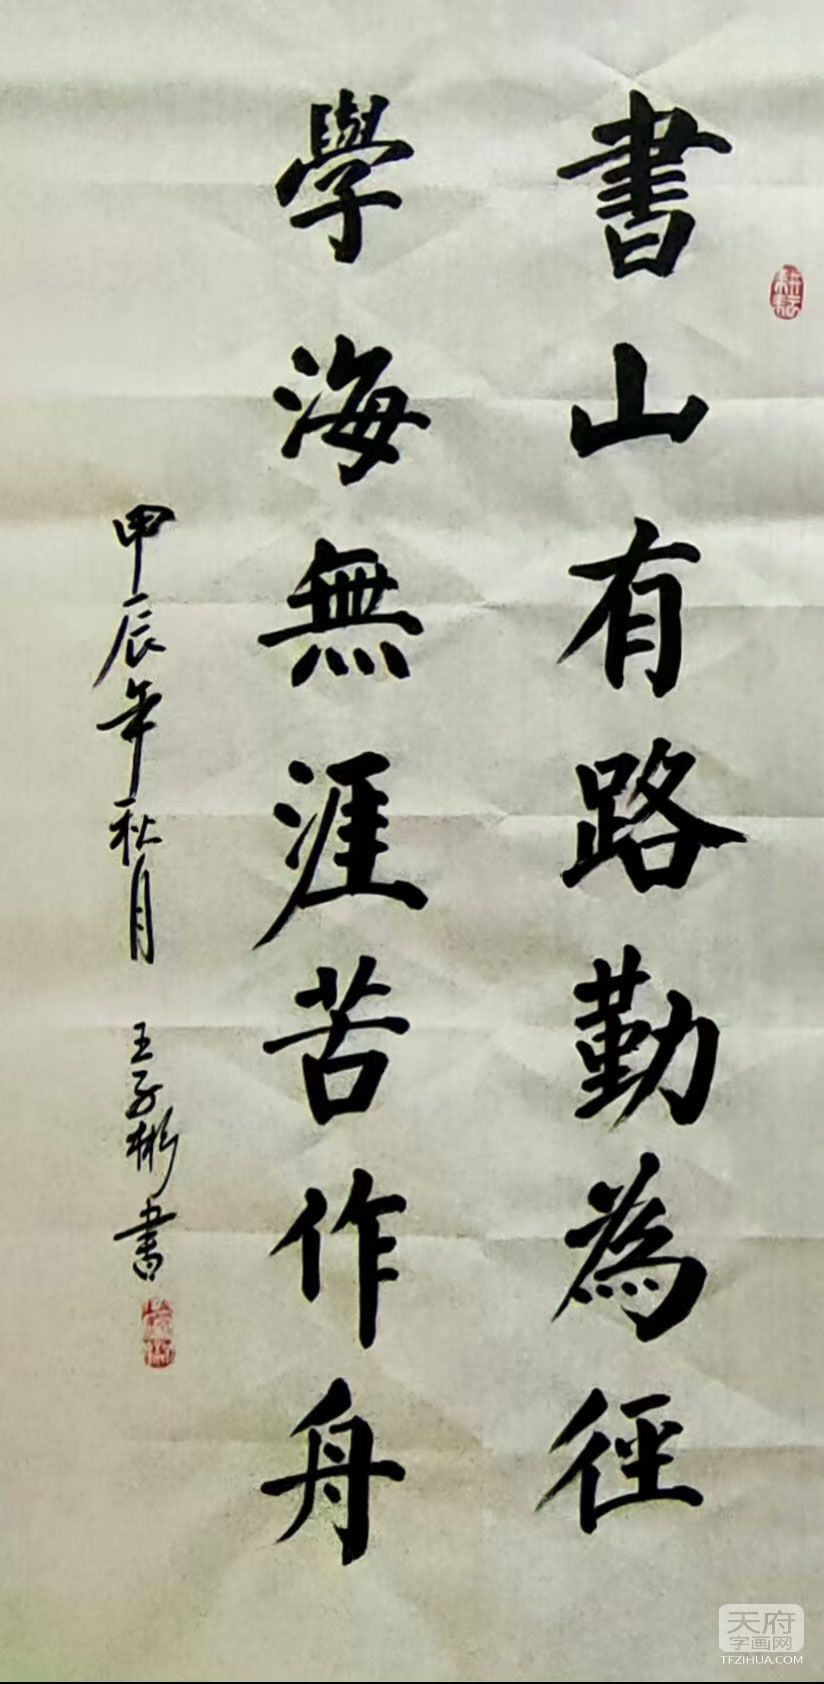 書山有路勤為徑
學海無涯苦作舟
甲辰年秋月 王子彬書
耕耘
天府
字画网
TFZIHUA.COM